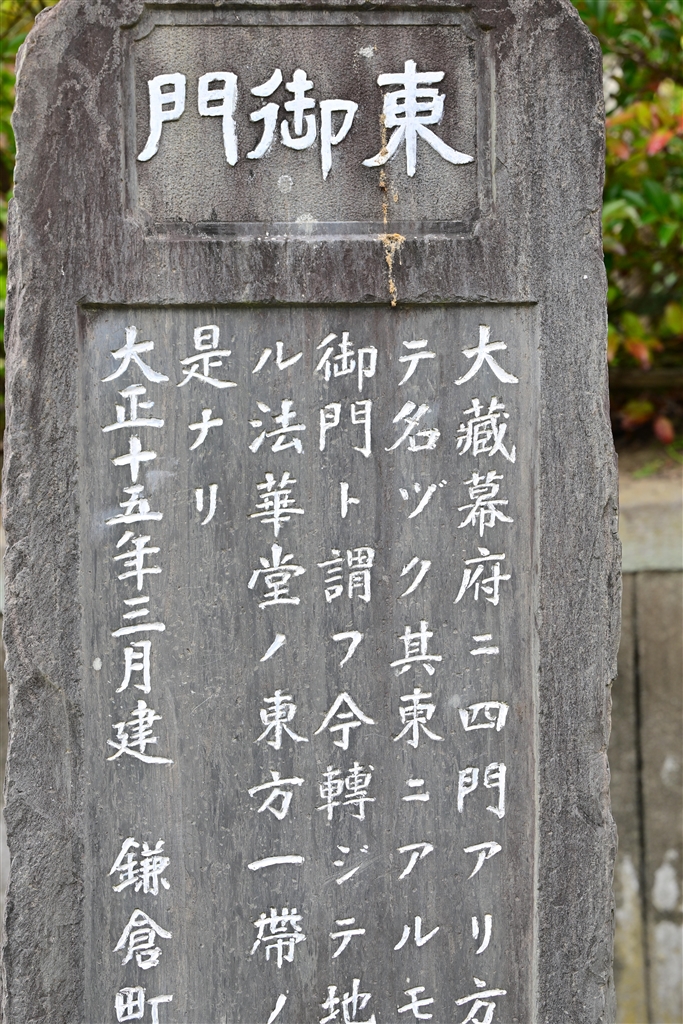 東御門
大藏幕府ニ四門アリ方
テ名ヅク其東ニアルモ
御門ト謂フ今轉ジテ地
ル法華堂ノ東方一帶ノ
是ナリ
大正十五年三月建 鎌倉町